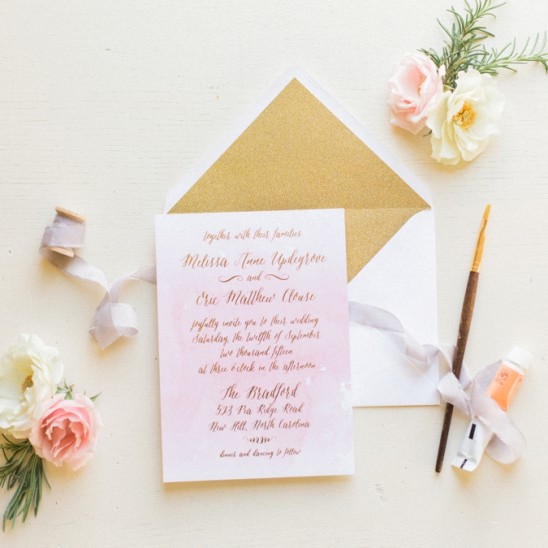 together with their families
Melissa Anne Updegrove
and
Eric Matthew Clouse
joyfully invite you to their wedding
Saturday the twelfth of September
two thousand fifteen
at three o'clock in the afternoon
The Bradford
523 Pea Ridge Road
New Hill, North Carolina
dinner and dancing to follow